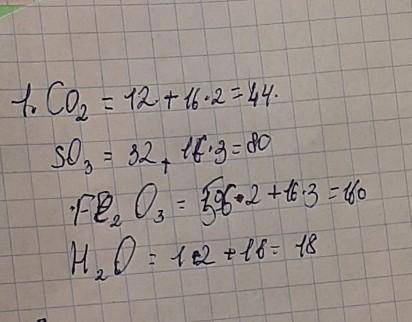 1. CO₂ = 12 + 16·2 = 44.
SO₃ = 32 + 16·3 = 80
Fe₂O₃ = 56·2 + 16·3 = 160
H₂O = 1·2 + 16 = 18